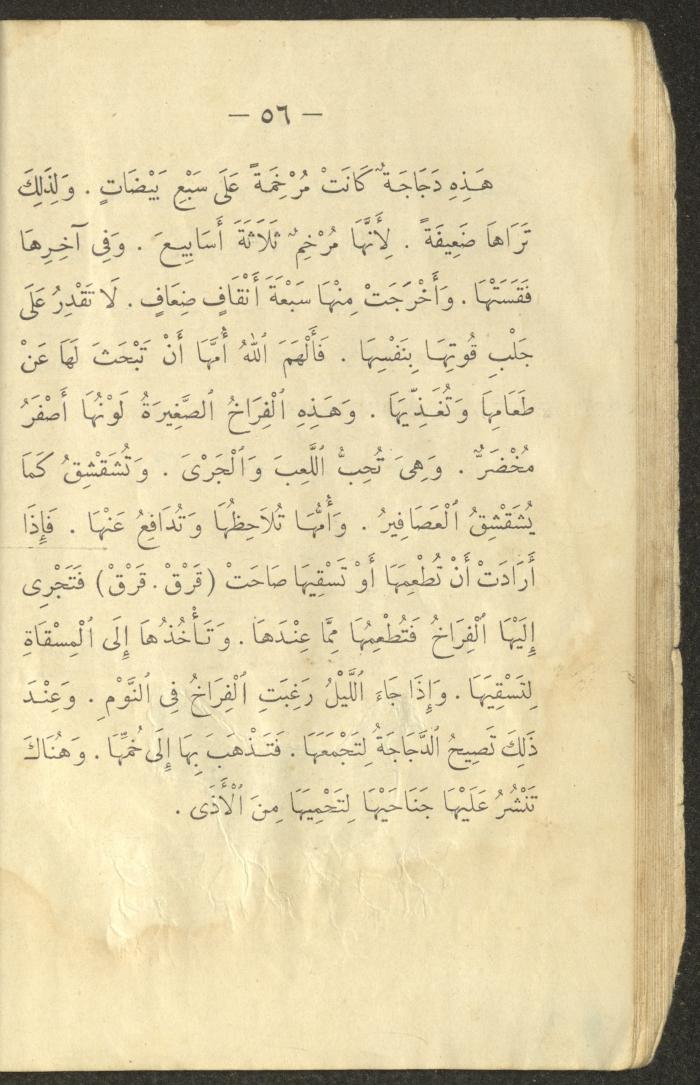 — ٥٦ —
هَـذِهِ دَجَاجَةٌ كَانَتْ مُرْخِمَةً عَلَى سَبْعِ بَيْضَاتٍ . وَلِذَلِكَ
تَرَاهَا ضَعِيفَةً . لِأَنَّهَا مُرْخِمٌ ثَلَاثَةَ أَسَابِيـعَ . وَفِى آخِـرِهَا
فَقَسَتْهَا . وَأَخْرَجَتْ مِنْهَا سَبْعَةَ أَنْقَافٍ ضِعَافٍ . لَا تَقْدِرُ عَلَى
جَلْبِ قُوتِهَـا بِنَفْسِهَا . فَأَلْهَمَ ٱللهُ أُمَّهَا أَنْ تَبْحَثَ لَهَا عَنْ
طَعَامِهَا وَتُغَـذِّيَهَا . وَهَـذِهِ ٱلْفِرَاخُ ٱلصَّغِيرَةُ لَوْنُهَا أَصْفَرُ
مُخْضَرٌّ . وَهِىَ تُحِبُّ ٱللَّعِبَ وَٱلْجَرْىَ . وَتُشَقْشِقُ كَمَا
يُشَقْشِقُ ٱلْعَصَافِيرُ . وَأُمُّهَا تُلَاحِظُهَا وَتُدَافِعُ عَنْهَا . فَإِذَا
أَرَادَتْ أَنْ تُطْعِمَهَا أَوْ تَسْقِيَهَا صَاحَتْ (قَرْقْ . قَرْقْ) فَتَجْرِى
إِلَيْهَا ٱلْفِرَاخُ فَتُطْعِمُهَا مِمَّا عِنْـدَهَا . وَتَـأْخُذُهَا إِلَى ٱلْمِسْقَاةِ
لِتَسْقِيَهَا . وَإِذَا جَاءَ ٱللَّيْلُ رَغِبَتِ ٱلْفِرَاخُ فِى ٱلنَّوْمِ . وَعِنْـدَ
ذَلِكَ تَصِيحُ ٱلدَّجَاجَةُ لِتَجْمَعَهَا . فَتَـذْهَبَ بِهَا إِلَى خُمِّهَا . وَهُنَاكَ
تَنْشُرُ عَلَيْهَا جَنَاحَيْهَا لِتَحْمِيَهَا مِنَ ٱلْأَذَى .